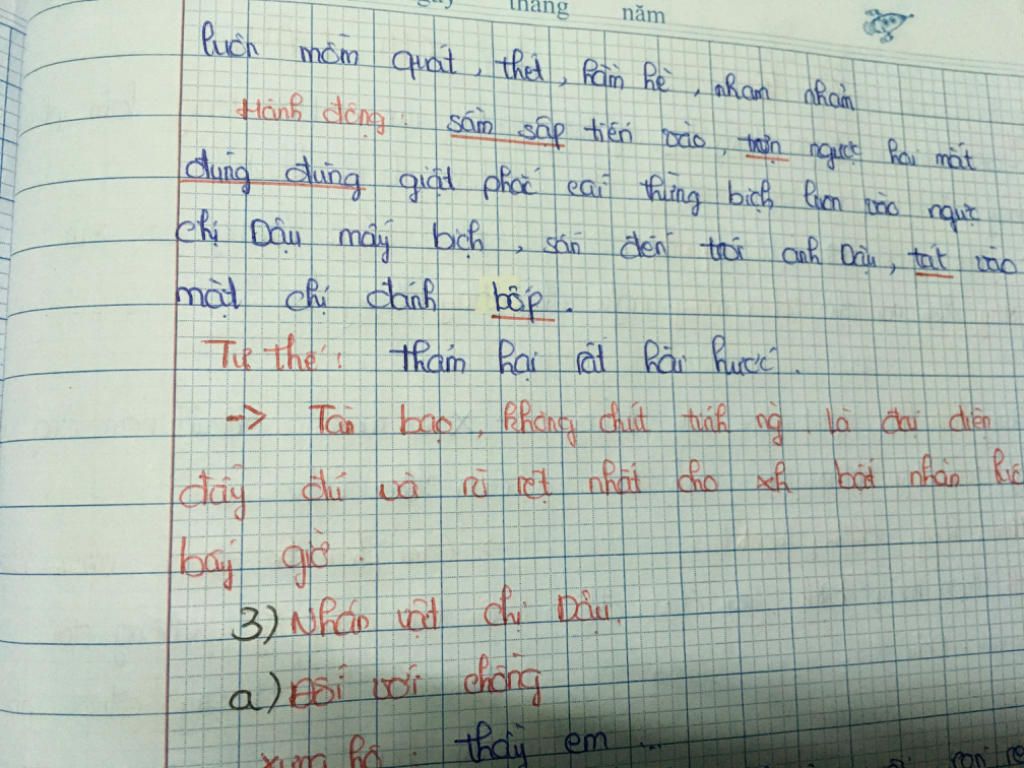 tháng năm
mồm quát, thét, hầm hè, nham nhảm
Hành động: sầm sập tiến vào, trợn ngược hai mắt
đùng đùng giật phắc cái thừng bịch luôn vào ngực
chị Dậu mấy bịch, sấn đến trói anh Dậu, tát vào
mặt chị đánh bốp.
Tư thế: thảm hại rất hài hước.
-> Tàn bạo, không chút tính ng. là đại diện
đầy đủ và rõ rệt nhất cho xh bất nhân
bấy giờ.
3) Nhân vật chị Dậu.
a) Đối với chồng
xưng hô: thầy em ...